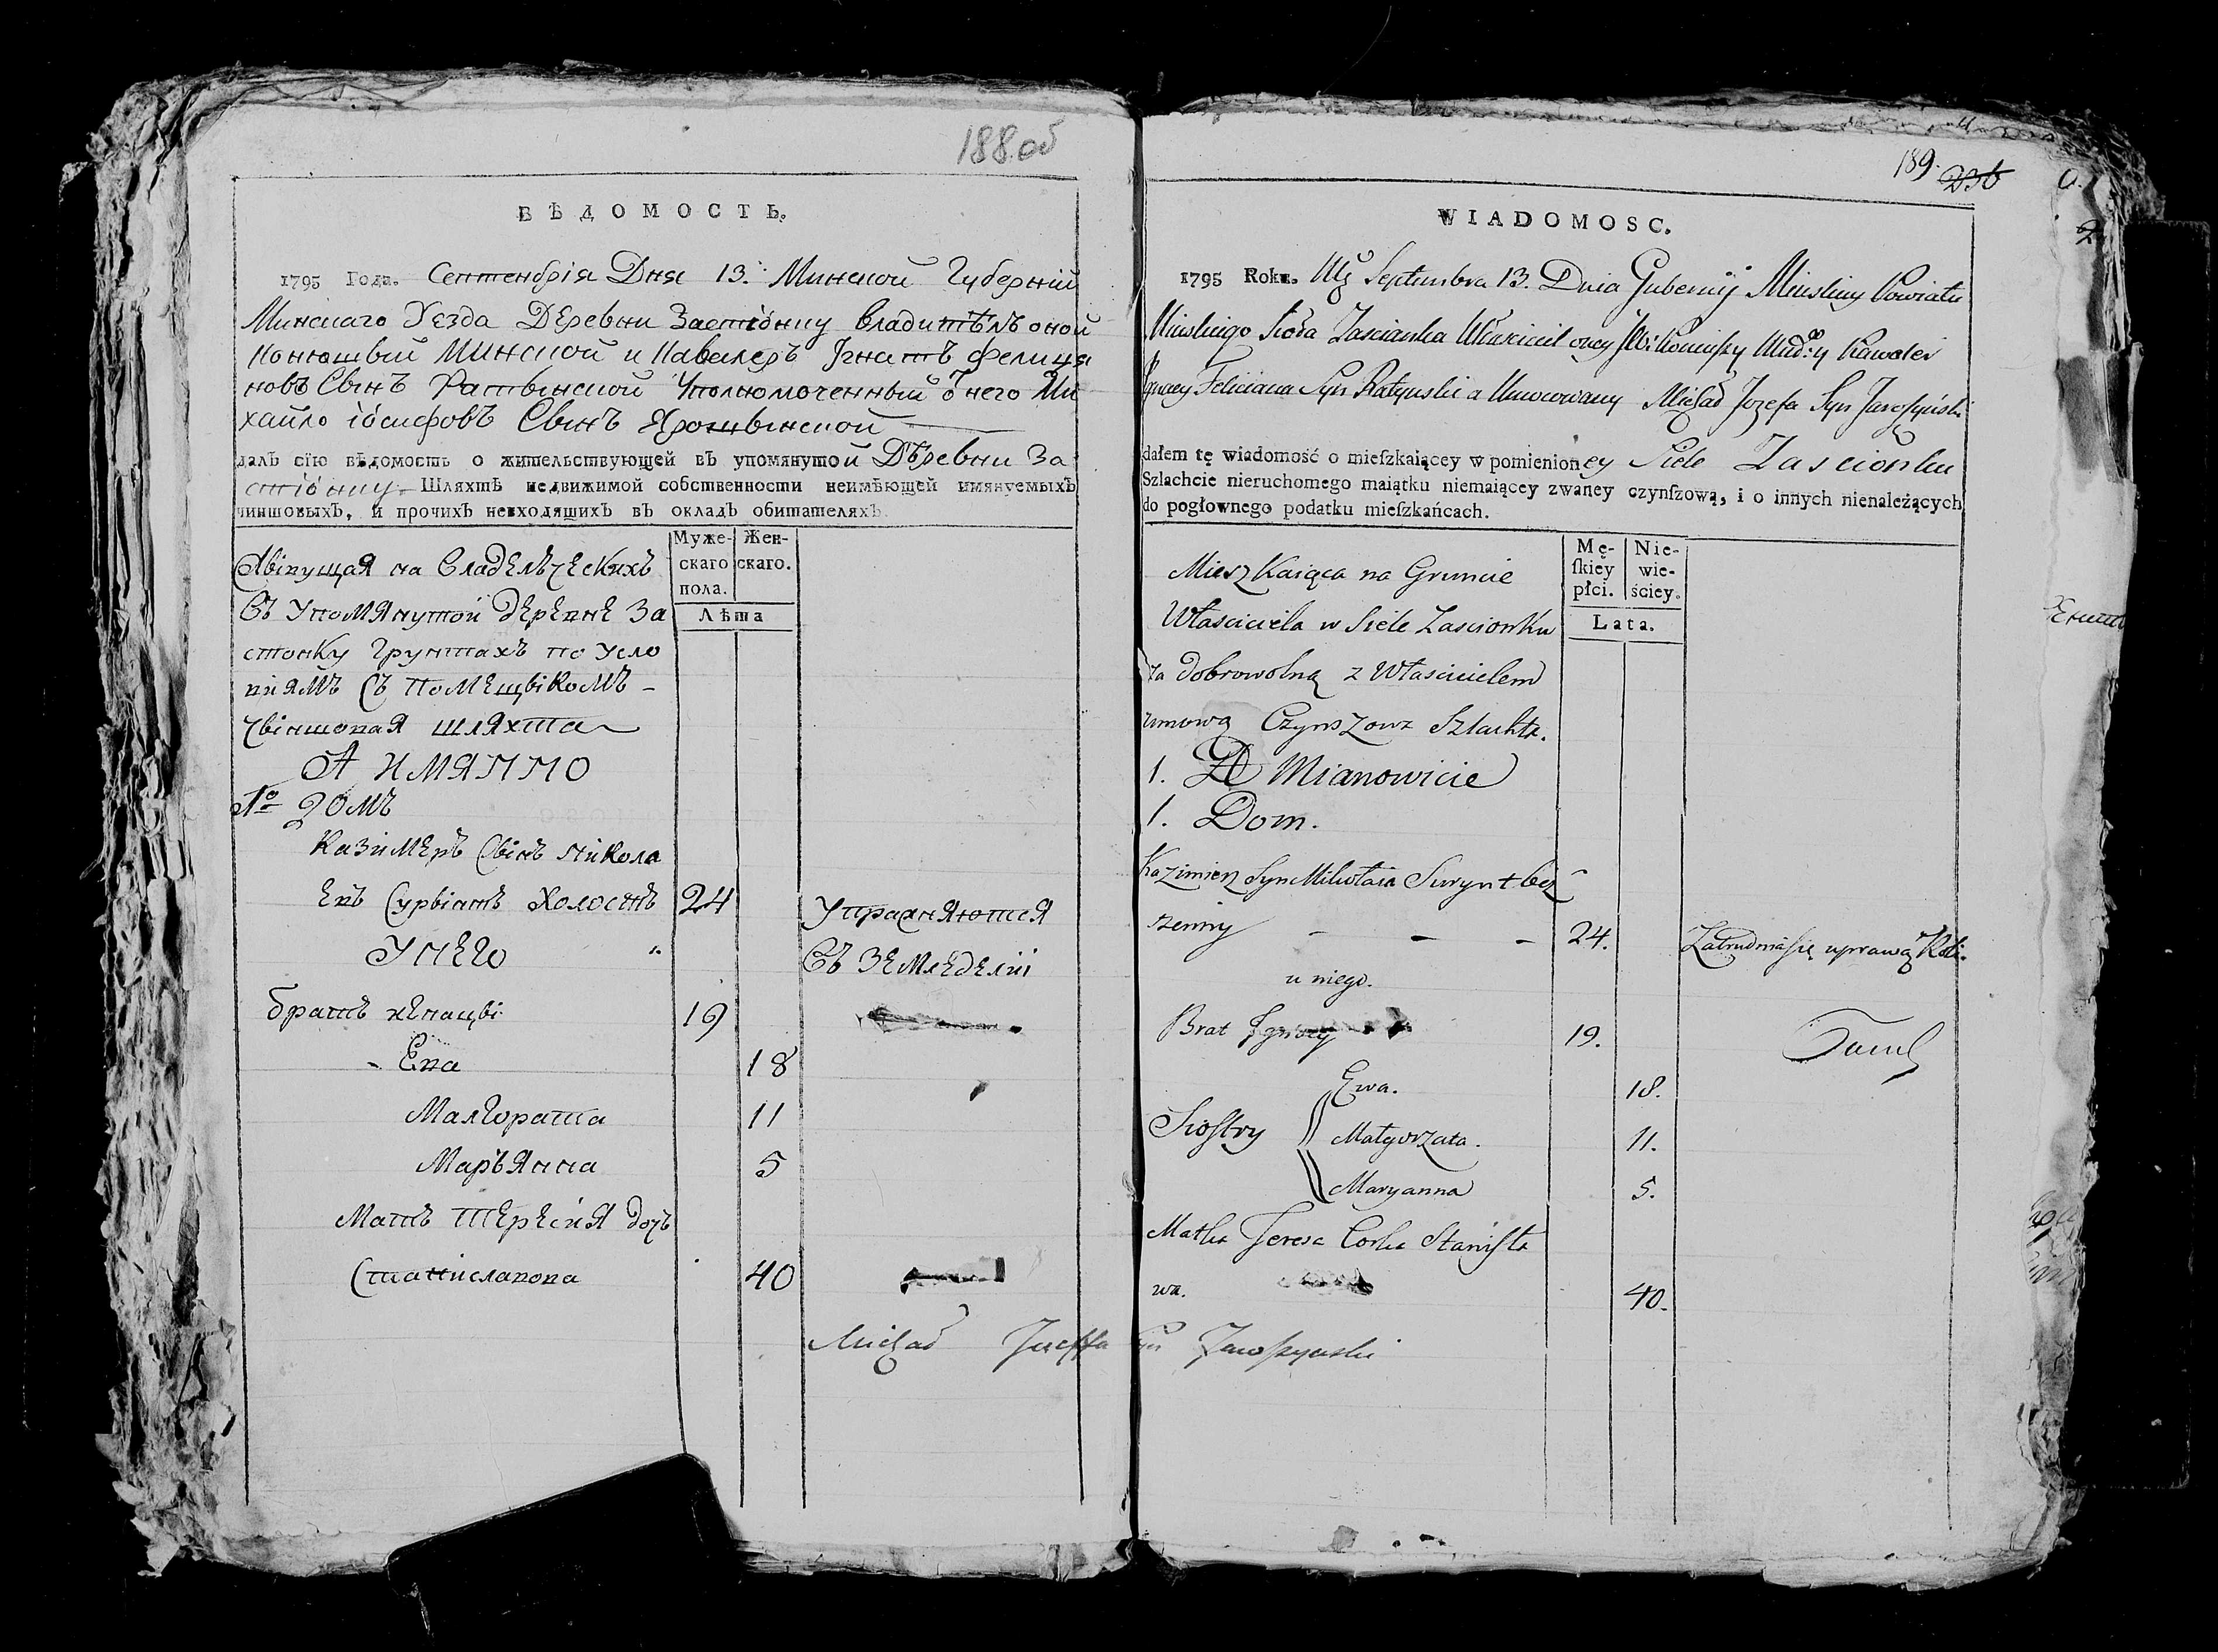 188.об
ВѢДОМОСТЬ.
1795 Года. Септембрія Дня 13. Минской Губерніи
Минскаго Уезда Деревни Застіонку владитѣль оной
Конюшыи Минской и Кавалеръ Игнатъ Фелиция
новъ Сынъ Ратынской Уполномоченный от него Ми
хайло Іосифовъ Сынъ Ярошынской
далъ сїю вѣдомость о жительствующей въ упомянутой Деревни За
стіонку Шляхтѣ недвижимой собственности неимѣющей имянуемыхъ
чиншовыхъ, и прочихъ невходящихъ въ окладъ обитателяхъ.
Муже-скаго пола. Жен-скаго.
Лѣта
Живущая на Владельческихъ
Въ Упомянутой деревне За
стонку Грунтахъ по Усло
виямъ Съ Помещыкомъ -
Чыншовая шляхта
А имянно
1º домъ
Казимеръ Сынъ Никола
евъ Сурвынтъ Холостъ 24 Упражняются
У него Въ земледелии
братъ игнацы 19
- Ева 18
Малгората 11
Марьянна 5
Матъ Тересия дочъ
Станиславова 40
Michał Józeffa Syn Jaroszynski
189. 236
WIADOMOSC.
1795 Roku. Mca Septembra 13. Dnia Gubernij Minskiey Powiatu
Minskiego Sioła Zascianka Właściciel oney Koniuszy Kawaler
Ignacy Feliciana Syn Ratynski a Umocowany Michał Jozefa Syn Jaroszynski
dałem tę wiadomość o mieſzkaiącey w pomienioney Siele Zascionku
Szlachcie nieruchomego maiątku niemaiącey zwaney czynſzową, i o innych nienależących
do pogłownego podatku mieſzkańcach.
Mę-ſkiey płci. Nie-wie-ściey.
Lata.
Mieszkaiąca na Gruncie
Właściciela w Siele Zascionku
za dobrowolną z Właścicielem
umową Czynszowa Szlachta.
1. A Mianowicie
1. Dom.
Kazimierz Syn Mikołaia Surwynt bez
żenny - - - 24. Zatrudnia się uprawą Roli.
u niego.
Brat Ignacy 19.
Ewa. 18.
Siostry Małgorzata. 11.
Maryanna 5.
Matka Teresa Corka Stanisła
wa. 40.